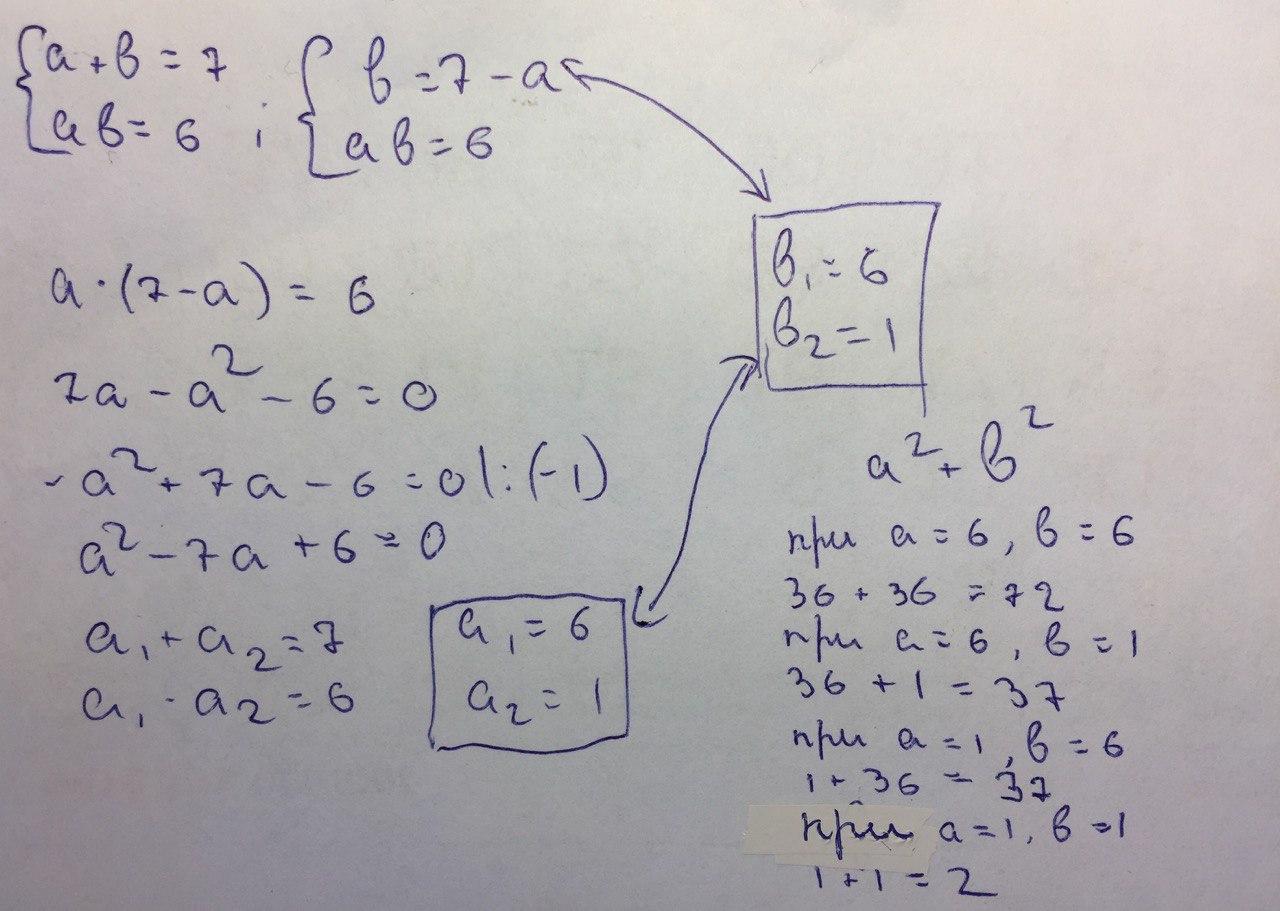 {a + b = 7
ab = 6 ; {b = 7 - a
ab = 6
a · (7 - a) = 6
7a - a² - 6 = 0
-a² + 7a - 6 = 0 |:(-1)
a² - 7a + 6 = 0
a₁ + a₂ = 7
a₁ · a₂ = 6
a₁ = 6
a₂ = 1
в₁ = 6
в₂ = 1
a² + в²
при a = 6, в = 6
36 + 36 = 72
при a = 6, в = 1
36 + 1 = 37
при a = 1, в = 6
1 + 36 = 37
при a = 1, в = 1
1 + 1 = 2